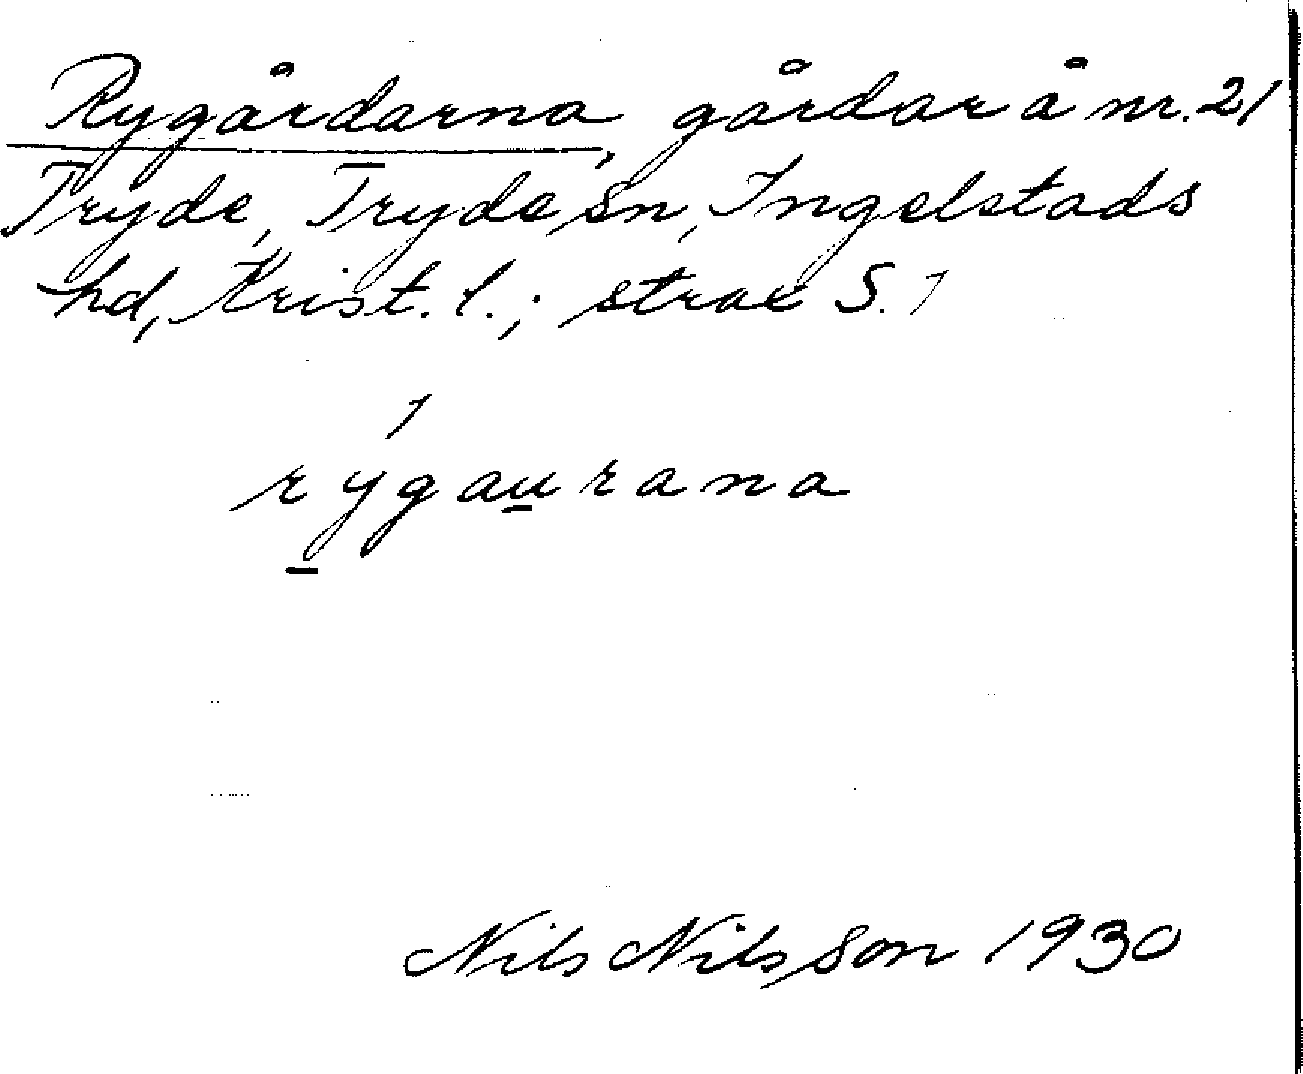 Rygårdarna, gårdar å nr. 21
Tryde, Tryde sn, Ingelstads
hd, Krist. l.; strax S. 1
rýgaurana
Nils Nilsson 1930